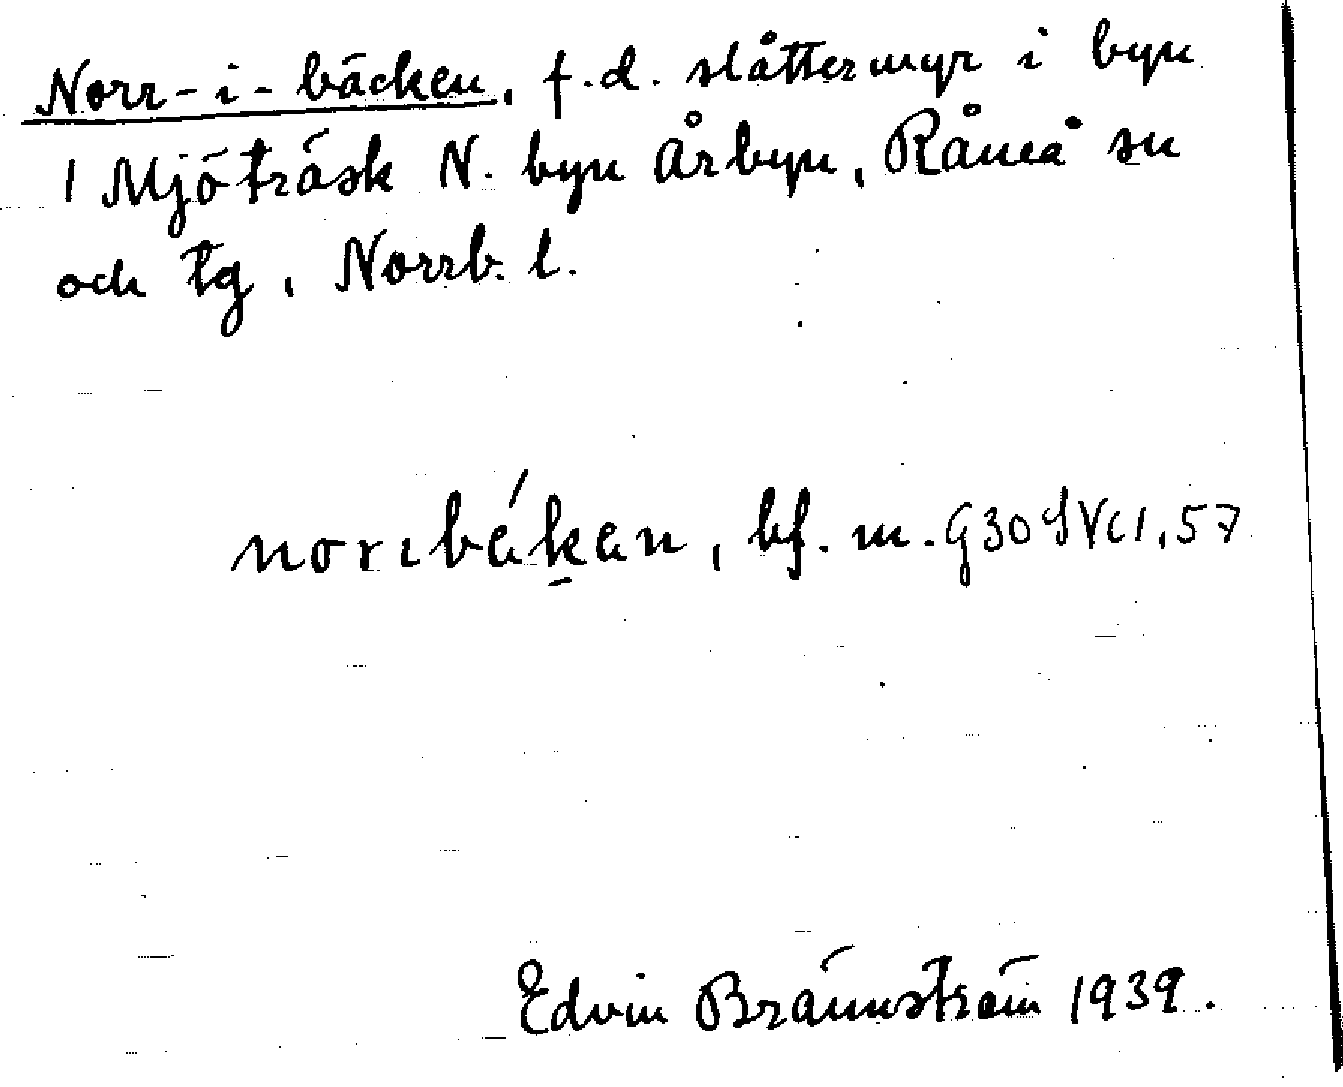 Norr-i-bäcken, f.d. slåttermyr i byn
1 Mjöträsk N. byn Årbyn, Råneå sn
och tg, Norrb. l.
norɪbákan, bf. m. G30SVII,57
Edvin Brännström 1939.